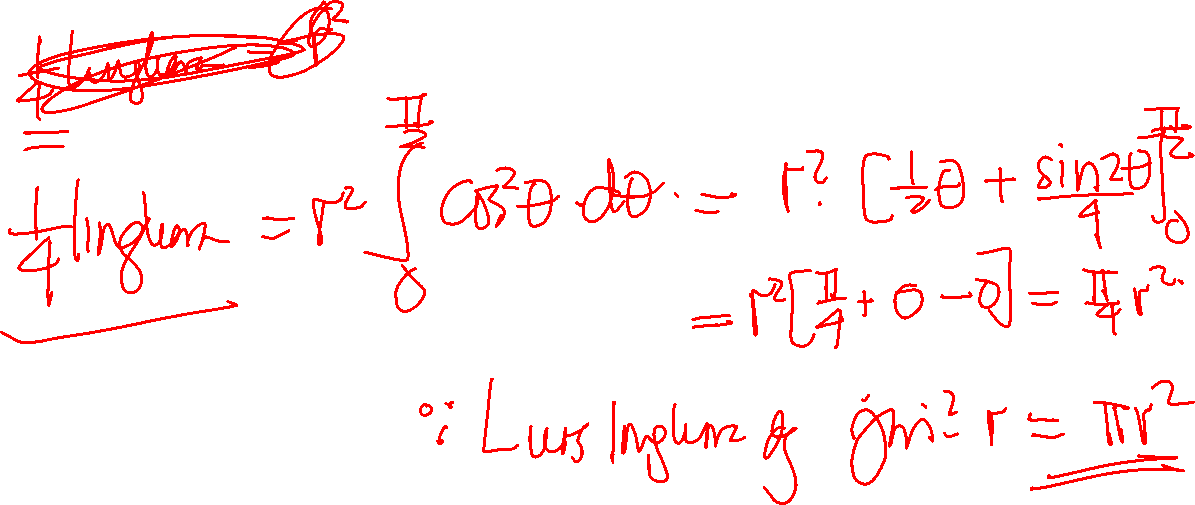 =
1/4 lingkaran = r² ∫₀^(π/2) cos²θ dθ. = r². [1/2 θ + sin2θ/4]₀^(π/2)
= r² [π/4 + 0 - 0] = π/4 r².
∴ Luas lingkaran r = πr²